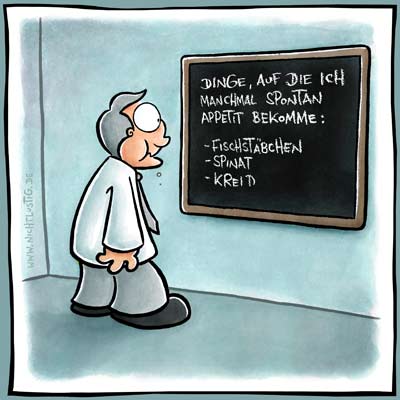 DINGE, AUF DIE ICH
MANCHMAL SPONTAN
APPETIT BEKOMME:
- FISCHSTÄBCHEN
- SPINAT
- KREID
WWW.NICHTLUSTIG.DE